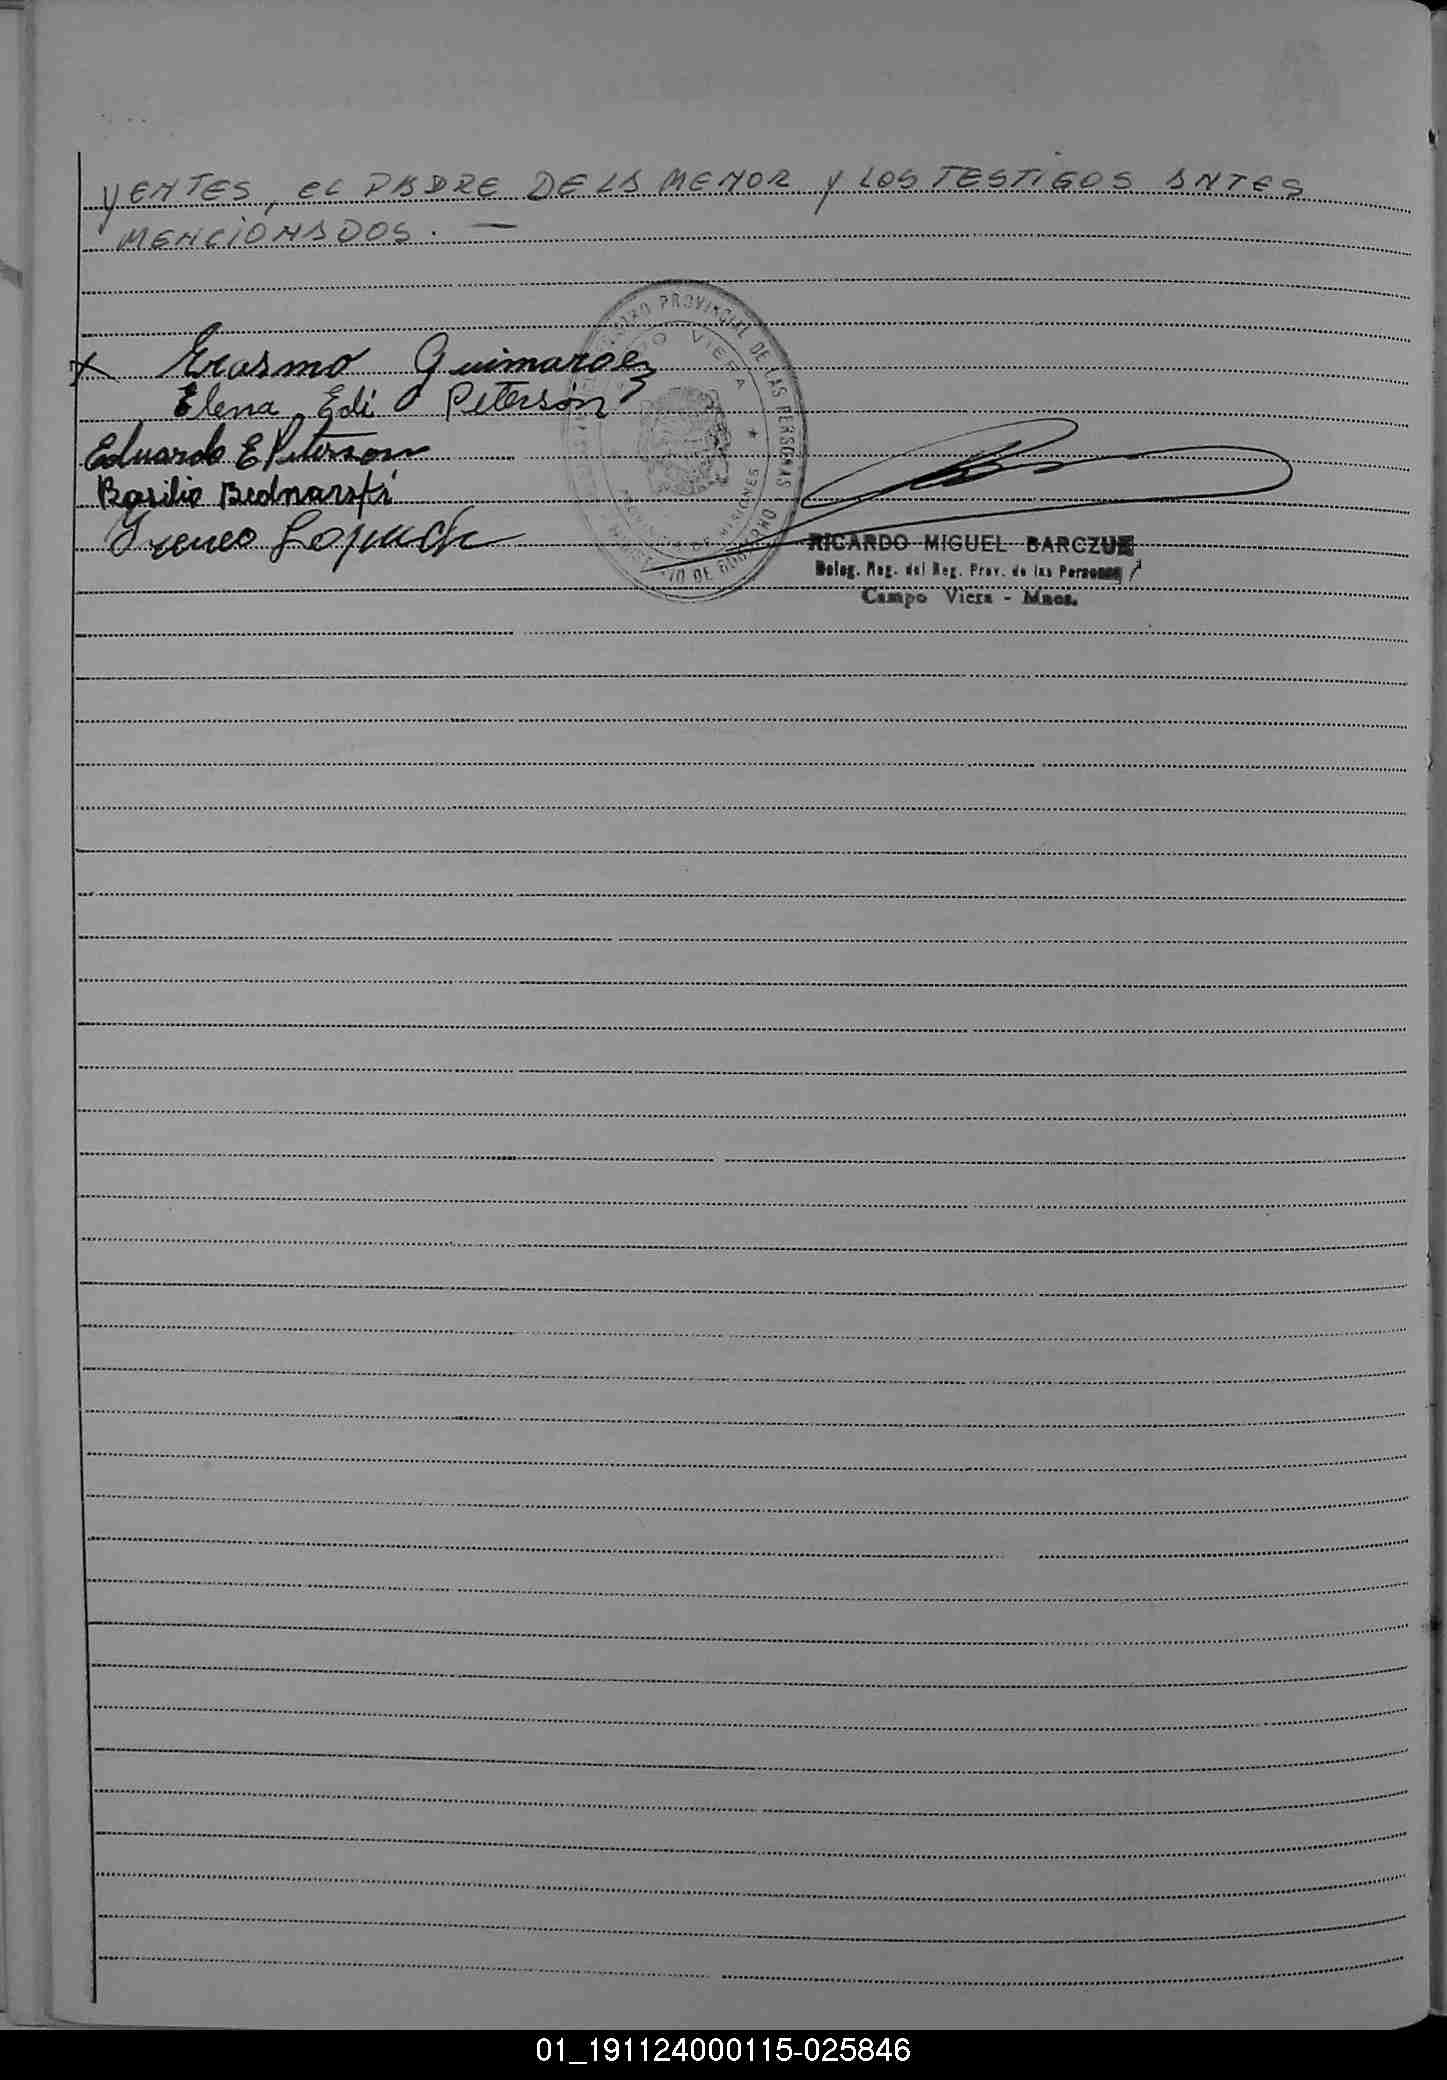 YENTES, EL PADRE DE LA MENOR Y LOS TESTIGOS ANTES
MENCIONADOS. —
X Erasmo Guimaraez
Elena Edi Peterson
Eduardo E Peterson
Basilio Bednarski
Ireneo
REGISTRO PROVINCIAL DE LAS PERSONAS
CAMPO VIERA
PROVINCIA DE MISIONES
MINISTERIO DE GOBIERNO
RICARDO MIGUEL BARCZUK
Deleg. Reg. del Reg. Prov. de las Personas
Campo Viera - Mnes.
01_191124000115-025846